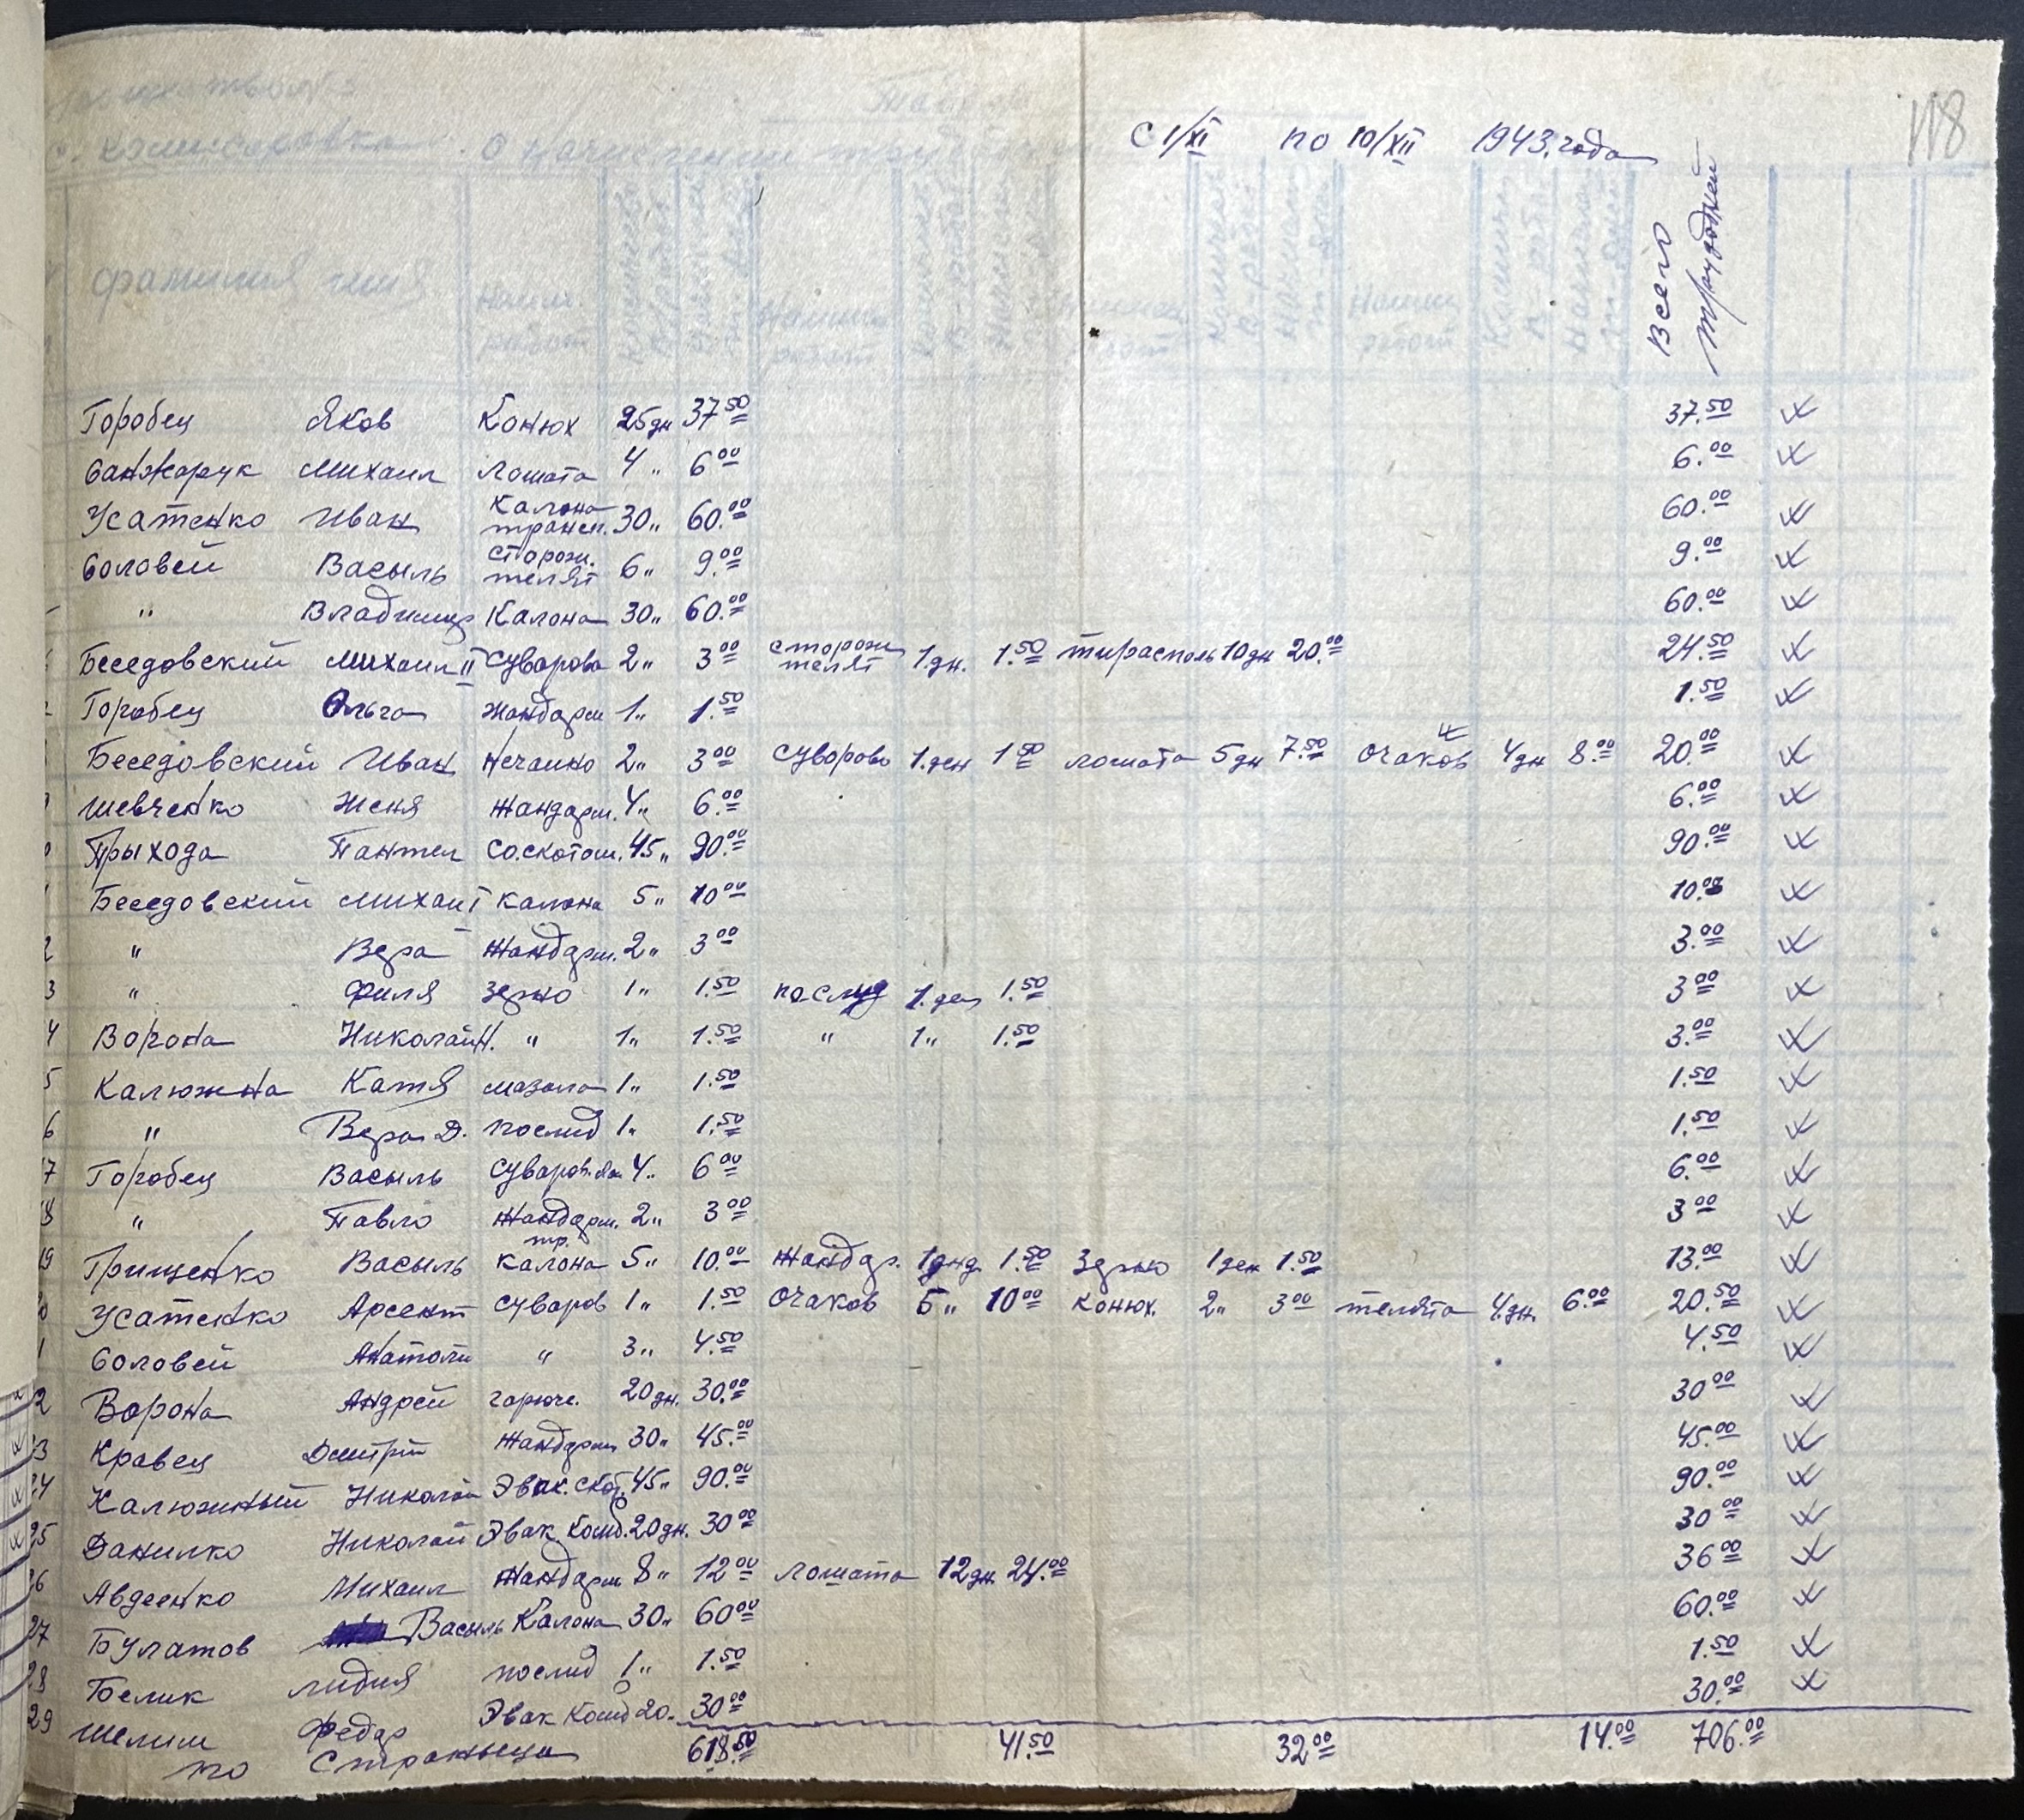 118
с. комисаровка о начислении
С 1/XI по 10/XII 1943. года
фамилия имя Наим. работ Наимен работ Наимен работ Наимен работ Всего трудодней
Горобец Яков Конюх 25 дн 37.50 37.50
Санжарук Михаил лошата 4 " 6.00 6.00
Усатенко Иван Калона трансп. 30 " 60.00 60.00
Соловей Васыль сторож. телят 6 " 9.00 9.00
" Владимир Калона 30 " 60.00 60.00
Беседовский Михаил II Суворово 2 " 3.00 сторож телят 1 дн. 1.50 тирасполь 10 дн 20.00 24.50
Горобец Ольга жандарм 1 " 1.50 1.50
Беседовский Иван Нечаино 2 " 3.00 Суворово 1 ден 1.50 лошата 5 дн 7.50 Очаков 4 дн 8.00 20.00
Шевченко Женя Жандарм. 4 " 6.00 6.00
Прыхода Пантел со.скотом. 45 " 90.00 90.00
Беседовский Михаил I калона 5 " 10.00 10.00
12 " Вера Жандарм. 2 " 3.00 3.00
13 " Филя зерно 1 " 1.50 послид 1. ден 1.50 3.00
14 Ворона Николай Н. " 1 " 1.50 " 1 " 1.50 3.00
15 Калюжна Катя мазала 1 " 1.50 1.50
16 " Вера Д. послид 1 " 1.50 1.50
17 Горобец Васыль Суваров. 4 " 6.00 6.00
18 " Павло Жандарм. 2 " 3.00 3.00
19 Грищенко Васыль тр. калона 5 " 10.00 Жандар. 1 1.50 Зерно 1 ден 1.50 13.00
20 Усатенко Арсент Суваров 1 " 1.50 Очаков 5 " 10.00 Конюх. 2 " 3.00 телята 4 дн. 6.00 20.50
21 Соловей Анатоли " 3 " 4.50 4.50
22 Ворона Андрей горюче. 20 дн. 30.00 30.00
23 Кравец Дмитрт Жандарм 30 " 45.00 45.00
24 Калюжный Николай Эвак. скот. 45 " 90.00 90.00
25 Данилко Николай Эвак. Комд. 20 дн. 30.00 30.00
26 Авдеенко Михаил Жандарм 8 " 12.00 лошата 12 дн 24.00 36.00
27 Булатов Васыль Калона 30 " 60.00 60.00
28 Белик лидия послид 1 " 1.50 1.50
29 Шелиш Федор Эвак Комд 20 " 30.00 30.00
по Страныца 618.50 41.50 32.00 14.00 706.00